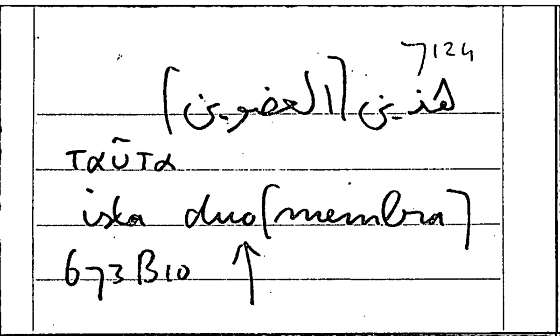 7124
هذين [العضوين]
ταῦτα
ista duo [membra]
673B10 ↑